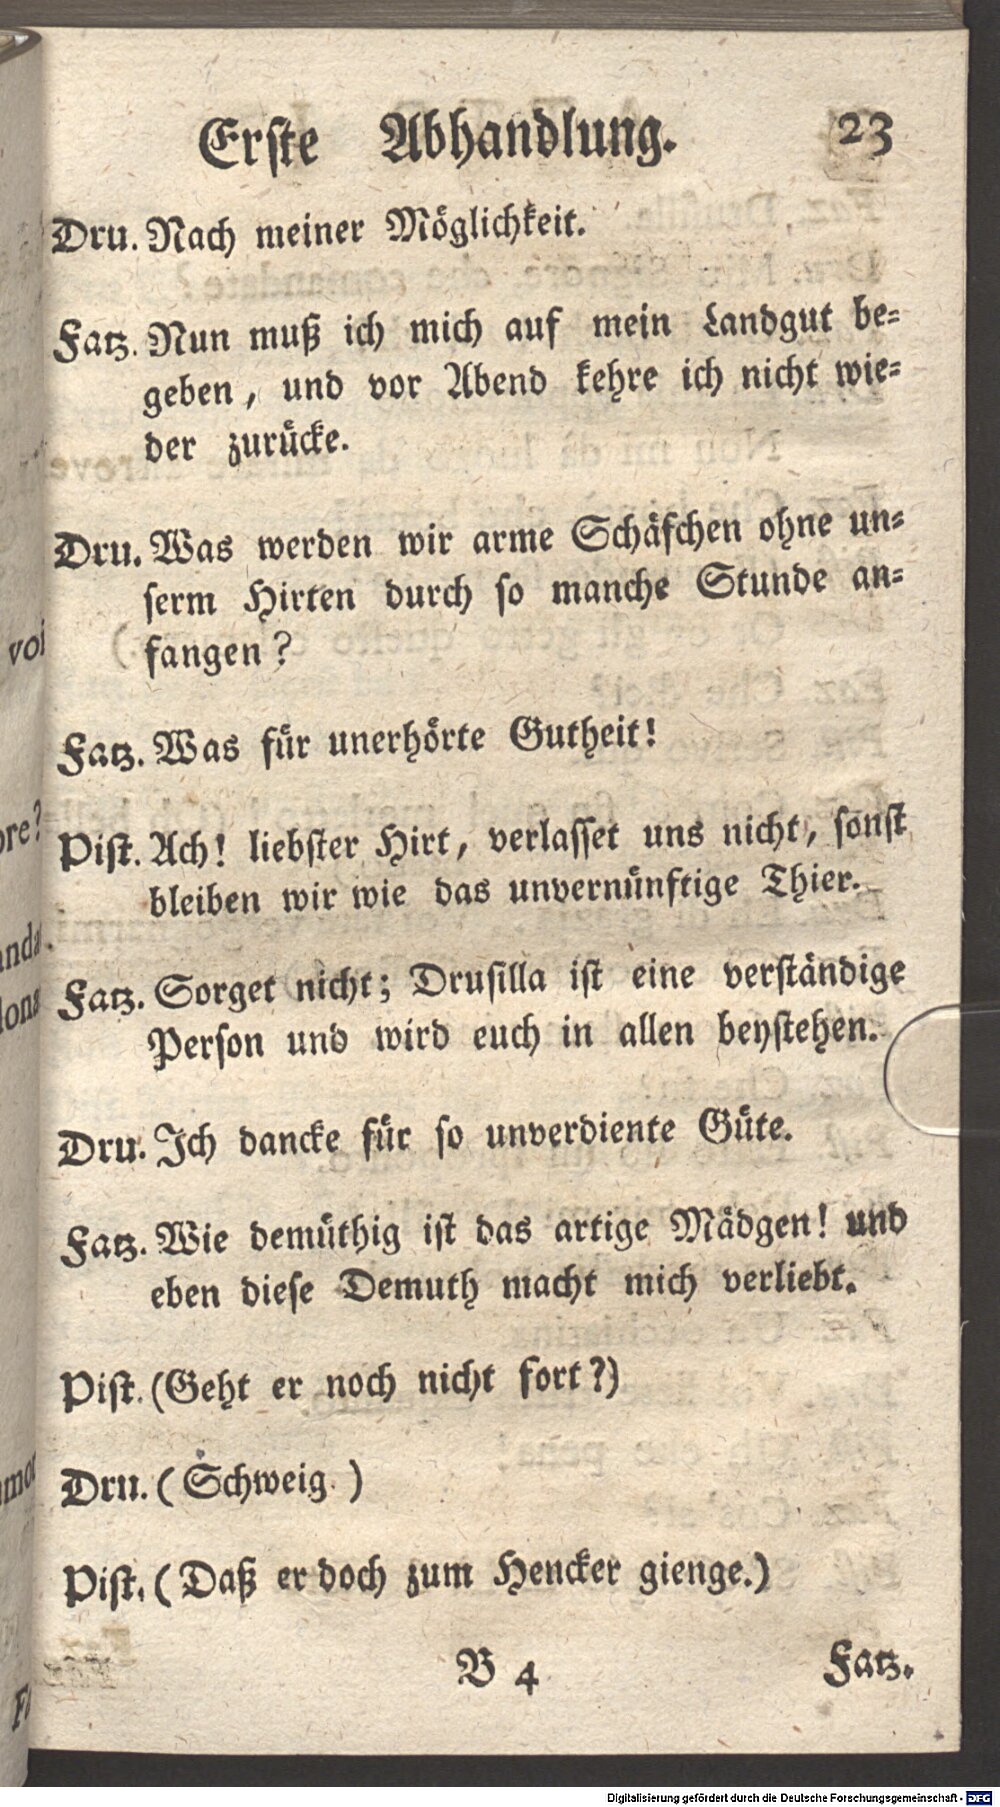 Erste Abhandlung. 23
Dru. Nach meiner Möglichkeit.
Fatz. Nun muß ich mich auf mein Landgut be=
geben, und vor Abend kehre ich nicht wie=
der zurücke.
Dru. Was werden wir arme Schäfchen ohne un=
serm Hirten durch so manche Stunde an=
fangen?
Fatz. Was für unerhörte Gutheit!
Pist. Ach! liebster Hirt, verlasset uns nicht, sonst
bleiben wir wie das unvernünftige Thier.
Fatz. Sorget nicht; Drusilla ist eine verständige
Person und wird euch in allen beystehen.
Dru. Ich dancke für so unverdiente Güte.
Fatz. Wie demüthig ist das artige Mädgen! und
eben diese Demuth macht mich verliebt.
Pist. (Geht er noch nicht fort?)
Dru. (Schweig )
Pist. (Daß er doch zum Hencker gienge.)
B 4 Fatz.
voi
ore?
Digitalisierung gefördert durch die Deutsche Forschungsgemeinschaft - DFG